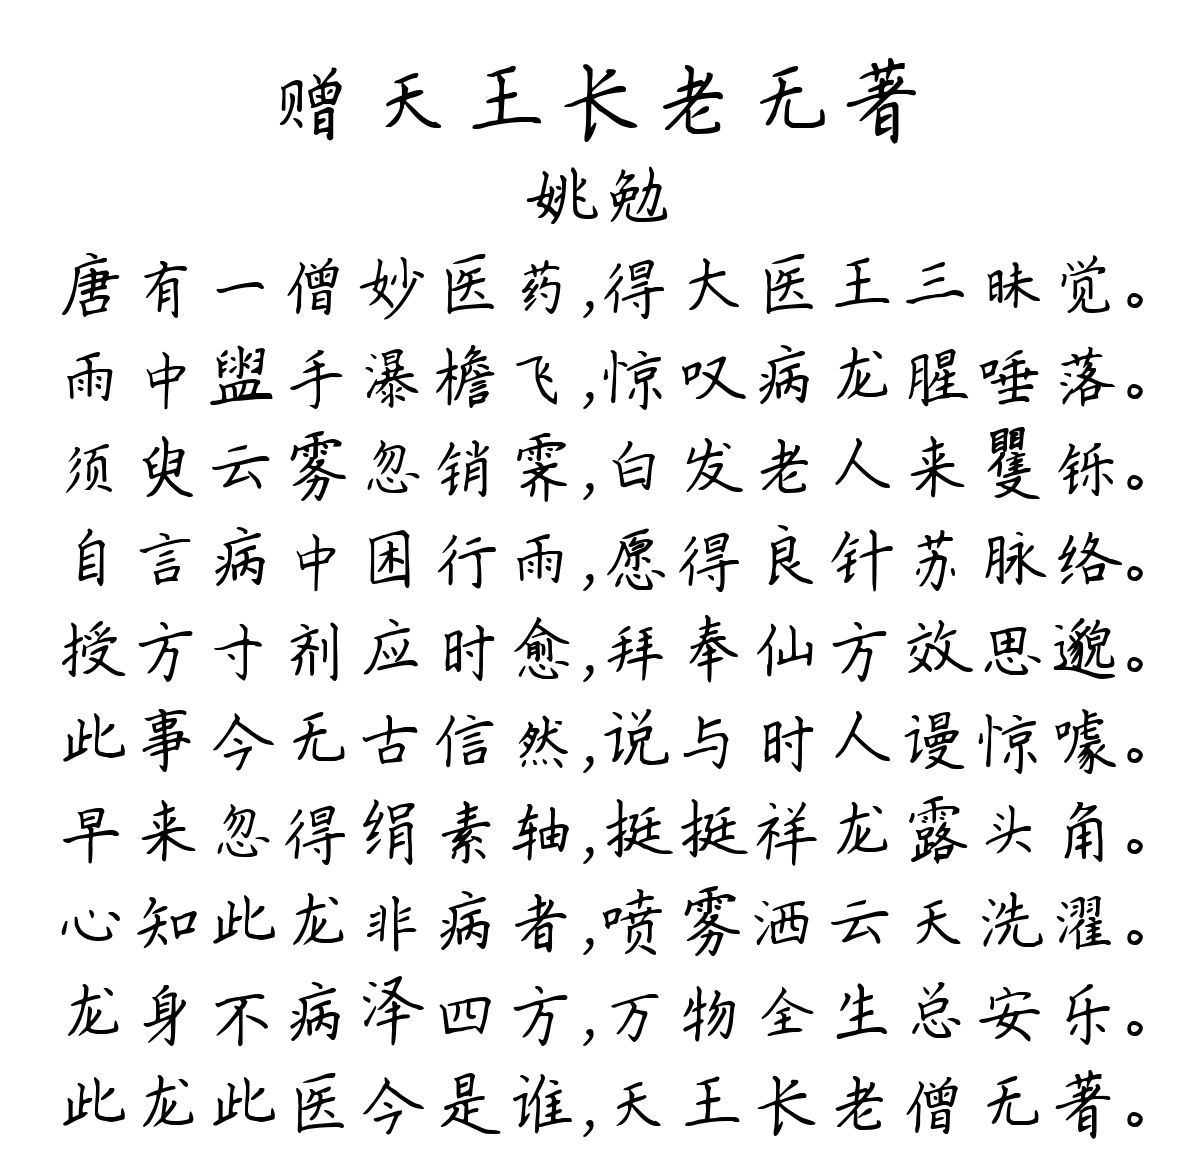 赠天王长老无著
姚勉
唐有一僧妙医药,得大医王三昧觉。
雨中盥手瀑檐飞,惊叹病龙腥唾落。
须臾云雾忽销霁,白发老人来矍铄。
自言病中困行雨,愿得良针苏脉络。
授方寸剂应时愈,拜奉仙方效思邈。
此事今无古信然,说与时人谩惊噱。
早来忽得绢素轴,挺挺祥龙露头角。
心知此龙非病者,喷雾洒云天洗濯。
龙身不病泽四方,万物全生总安乐。
此龙此医今是谁,天王长老僧无著。